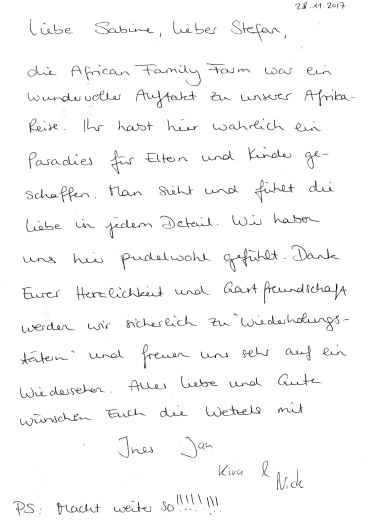 28.11.2017
Liebe Sabine, lieber Stefan,
die African Family Farm war ein
wundervoller Auftakt zu unserer Afrika-
Reise. Ihr habt hier wahrlich ein
Paradies für Eltern und Kinder ge-
schaffen. Man sieht und fühlt die
Liebe in jedem Detail. Wir haben
uns hier pudelwohl gefühlt. Dank
Eurer Herzlichkeit und Gastfreundschaft
werden wir sicherlich zu "Wiederholungs-
tätern" und freuen uns sehr auf ein
Wiedersehen. Alles Liebe und Gute
wünschen Euch die Wetzels mit
Ines Jan
Kira &
Nick
PS: Macht weiter so!!!!!!!